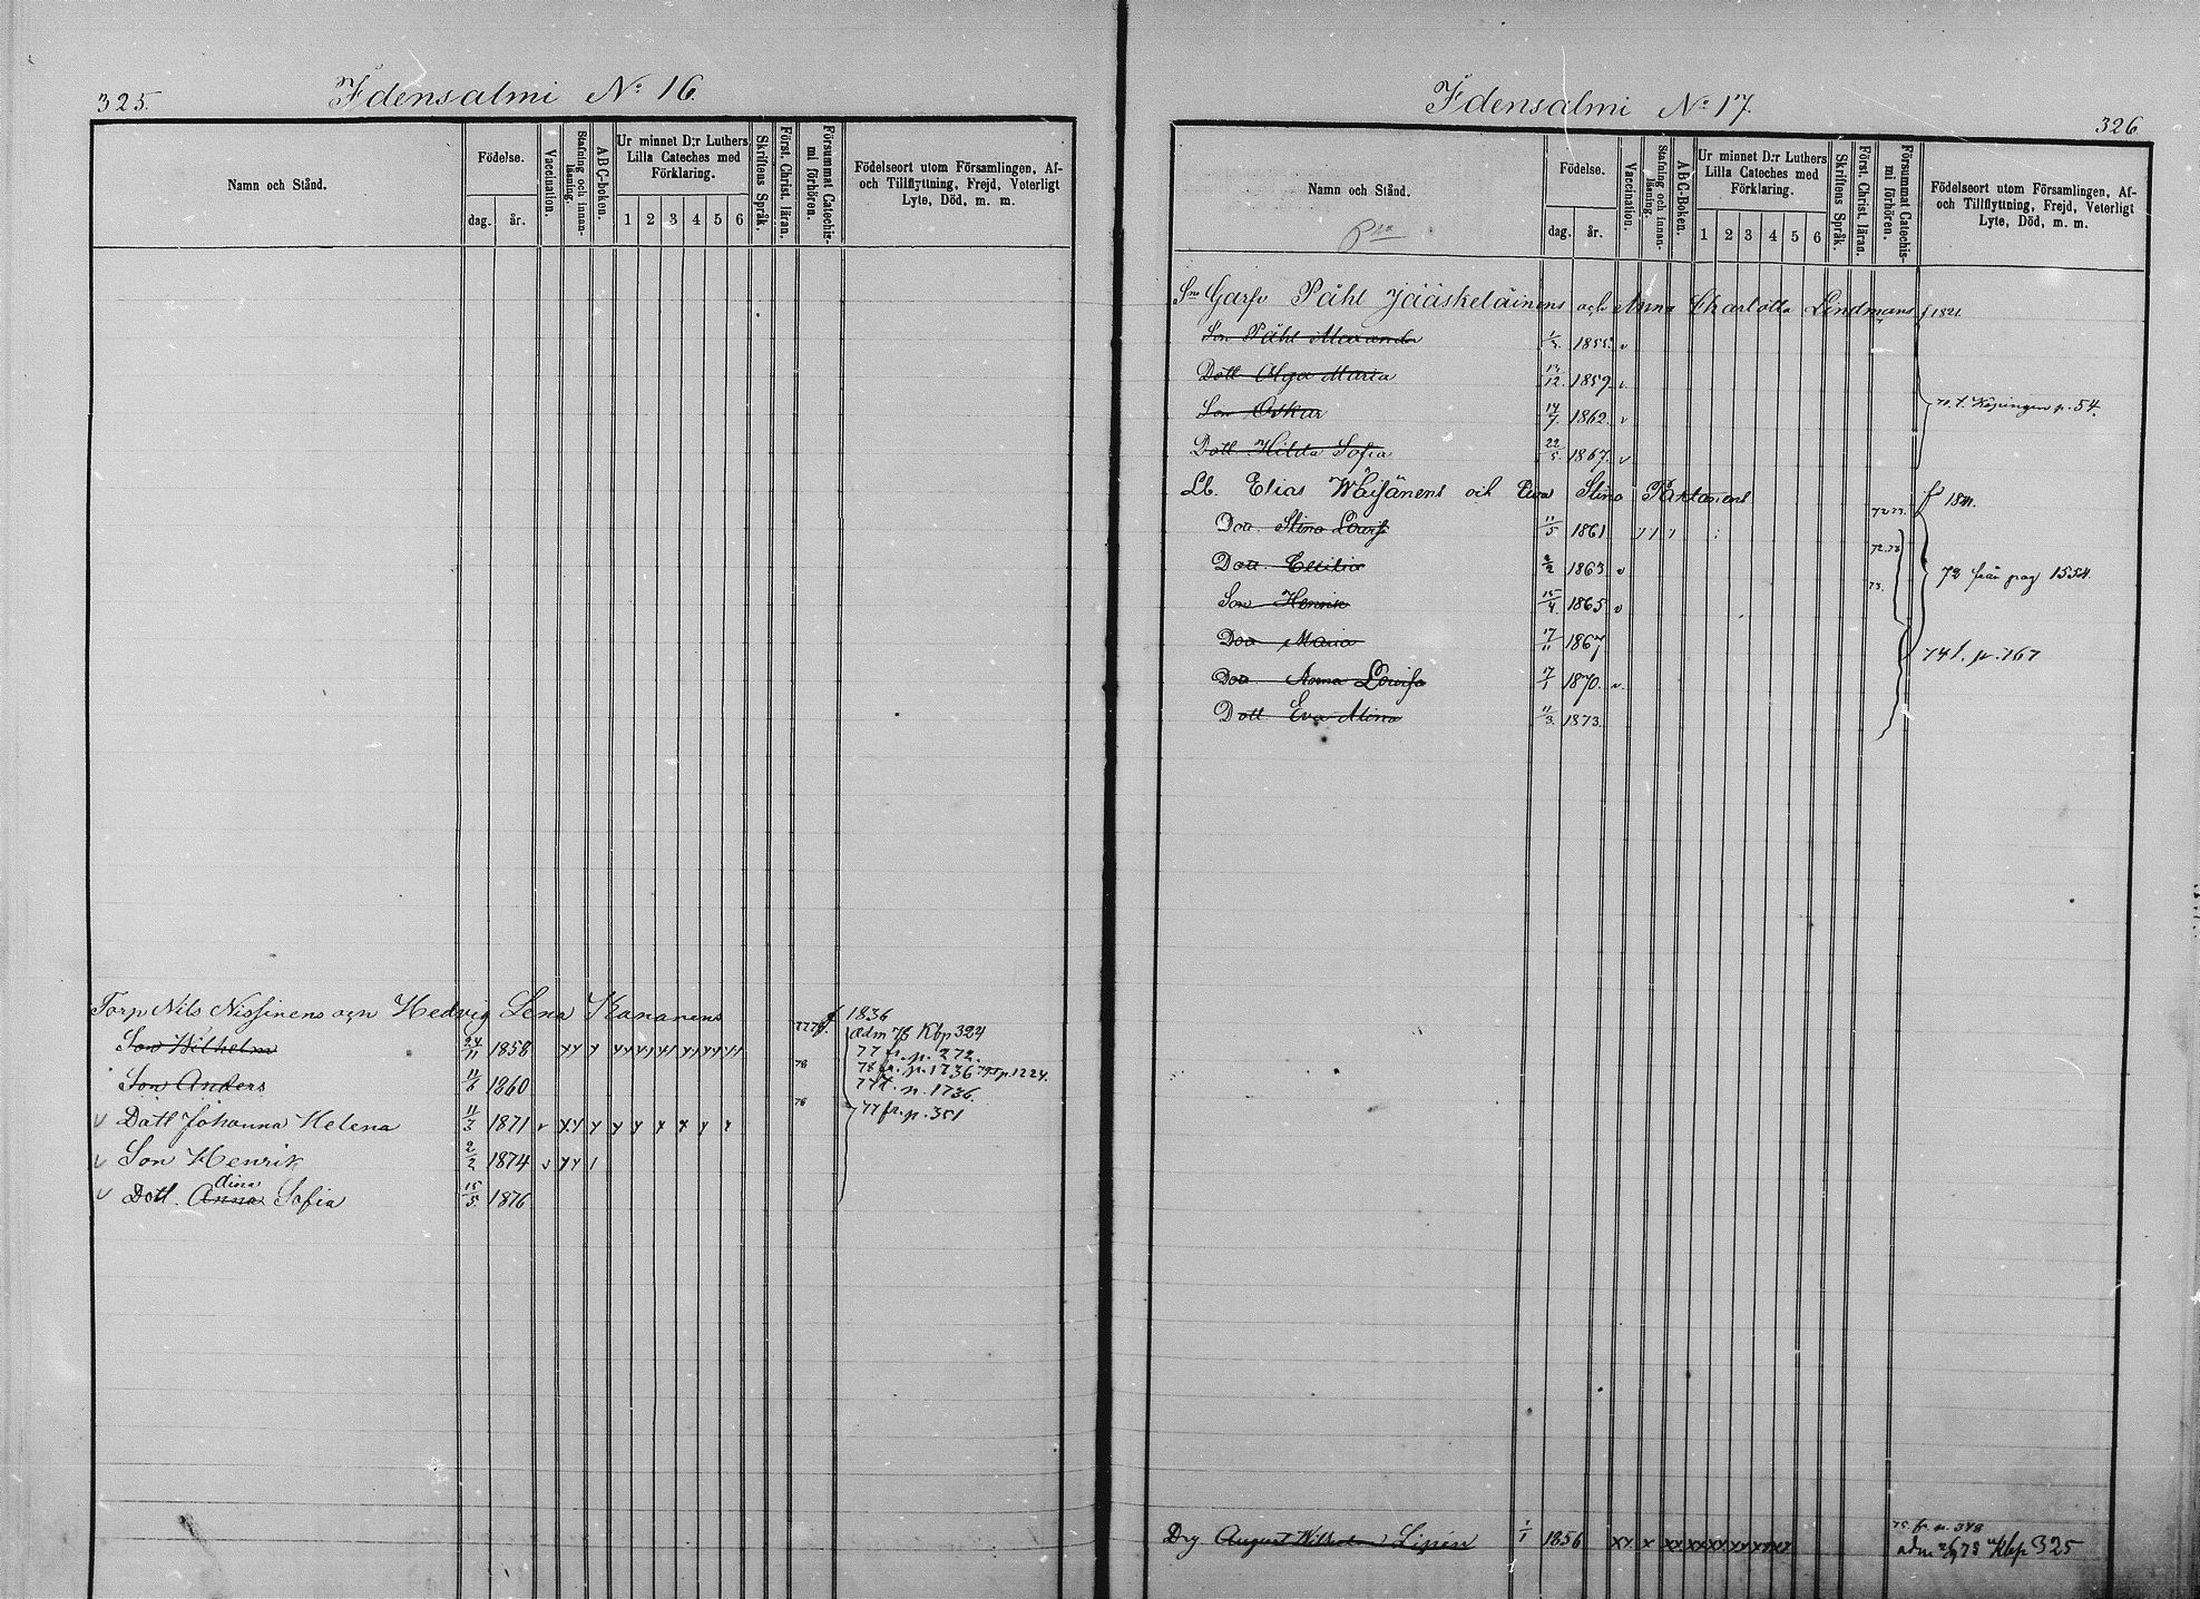 325.
Idensalmi No 16.
Namn och Stånd.
Födelse.
dag.
år.
Vaccination.
Stafning och innan-
läsning.
ABC-boken.
Ur minnet D:r Luthers
Lilla Cateches med
Förklaring.
1 2 3 4 5 6
Skriftens Språk.
Först. Christ. läran.
Försummat Catechis-
mi förhören.
Födelseort utom Församlingen, Af-
och Tillflyttning, Frejd, Veterligt
Lyte, Död, m. m.
Torp Nils Nissinens och Hedvig Lena Kananens f 1836
Son Wilhelm 24/11 1858 adm 76 Kbp 324
77 fr. p. 272.
Son Anders 11/6 1860 76 78 fr. p. 1736 p. 1224.
77 t. p. 1736.
Dott Johanna Helena 11/3 1871 76 77 fr. p. 351
Son Henrik 2/2 1874
dina
Dott. Anna Sofia 15/5. 1876
Idensalmi No 17.
326
Namn och Stånd.
Födelse.
dag.
år.
Vaccination.
Stafning och innan-
läsning.
ABC-Boken.
Ur minnet D:r Luthers
Lilla Cateches med
Förklaring.
1 2 3 4 5 6
Skriftens Språk.
Först. Christ. läran.
Försummat Catechis-
mi förhören.
Födelseort utom Församlingen, Af-
och Tillflyttning, Frejd, Veterligt
Lyte, Död, m. m.
Garfv Påhl Jääskeläinens och Anna Charlotta Lindmans f 1821
Son Påhl 1855.
Dott Olga Maria 1859.
Son Oskar 14/7. 1862. t. Köpingen p. 54.
Dott Hilda Sofia 22/5. 1867.
Lb. Elias Wäisänens och Eva Stina f 1841.
72 73.
Dott. Stina Lovisa 11/5 1861
72.73
Dott. Cecilia 2/2 1863 72 från pag 1554.
73.
Son Henrik 15/4. 1865
Dott Maria 17/11 1867
74 t. p. 767
Dott Anna Lovisa 17/1 1870.
Dott Eva Mina 11/3. 1873.
75 fr p. 348
Drg August Wilhelm Lipén 1/1 1856 adm 75 Kbp 325